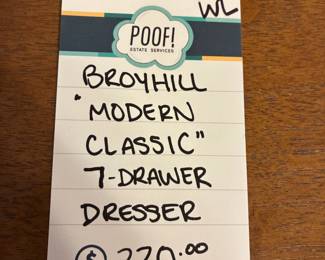 WL
POOF!
ESTATE SERVICES
BROYHILL
"MODERN
CLASSIC"
7-DRAWER
DRESSER
$ 220.00